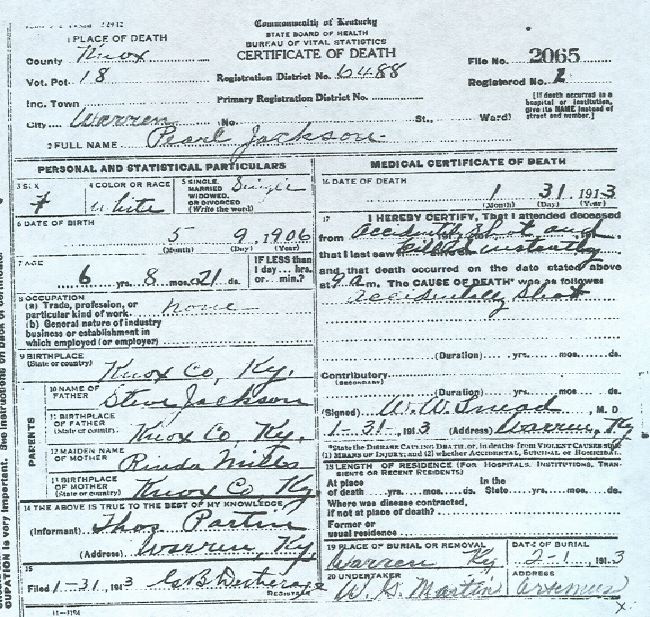 Commonwealth of Kentucky
STATE BOARD OF HEALTH
BUREAU OF VITAL STATISTICS
CERTIFICATE OF DEATH
1 PLACE OF DEATH
County Knox
Vot. Pct. 18
Inc. Town
City Warren No. St., Ward)
Registration District No. 6488
Primary Registration District No.
File No. 2065
Registered No. 1
[If death occurred in a hospital or institution, give its NAME instead of street and number.]
2 FULL NAME Pearl Jackson
PERSONAL AND STATISTICAL PARTICULARS
3 SEX F
4 COLOR OR RACE White
5 SINGLE, MARRIED WIDOWED, OR DIVORCED (Write the word) Single
6 DATE OF BIRTH 5 9, 1906
(Month) (Day) (Year)
7 AGE 6 yrs. 8 mos. 21 ds.
IF LESS than 1 day... hrs. or... min.?
8 OCCUPATION
(a) Trade, profession, or particular kind of work none
(b) General nature of industry business or establishment in which employed (or employer)
9 BIRTHPLACE (State or country) Knox Co, Ky.
PARENTS
10 NAME OF FATHER Steve Jackson
11 BIRTHPLACE OF FATHER (State or country) Knox Co, Ky.
12 MAIDEN NAME OF MOTHER Rinda Mills
13 BIRTHPLACE OF MOTHER (State or country) Knox Co Ky
14 THE ABOVE IS TRUE TO THE BEST OF MY KNOWLEDGE
(Informant) Thos Partin
(Address) Warren, Ky.
15
Filed 1-31, 1913
REGISTRAR
11-3184
MEDICAL CERTIFICATE OF DEATH
16 DATE OF DEATH
1 31 1913
(Month) (Day) (Year)
17 I HEREBY CERTIFY, That I attended deceased
from accidently shot and
that I last saw killed instantly
and that death occurred on the date stated above
at 9 a m. The CAUSE OF DEATH* was as follows
accidentily Shot
(Duration) yrs. mos. ds.
Contributory
(SECONDARY)
(Duration) yrs. mos. ds.
(Signed) W. W. Tinead, M. D
1-31, 1913 (Address) Warren, Ky
*State the DISEASE CAUSING DEATH, or, in deaths from VIOLENT CAUSES state (1) MEANS OF INJURY; and (2) whether ACCIDENTAL, SUICIDAL or HOMICIDAL.
18 LENGTH OF RESIDENCE (FOR HOSPITALS, INSTITUTIONS, TRANSIENTS OR RECENT RESIDENTS)
At place of death yrs. mos. ds. In the State yrs. mos. ds.
Where was disease contracted, if not at place of death?
Former or usual residence
19 PLACE OF BURIAL OR REMOVAL Warren Ky
DATE OF BURIAL 2-1, 1913
20 UNDERTAKER W. G. Martin
ADDRESS Artemus
CUPATION is very important. See instructions on back of certificate